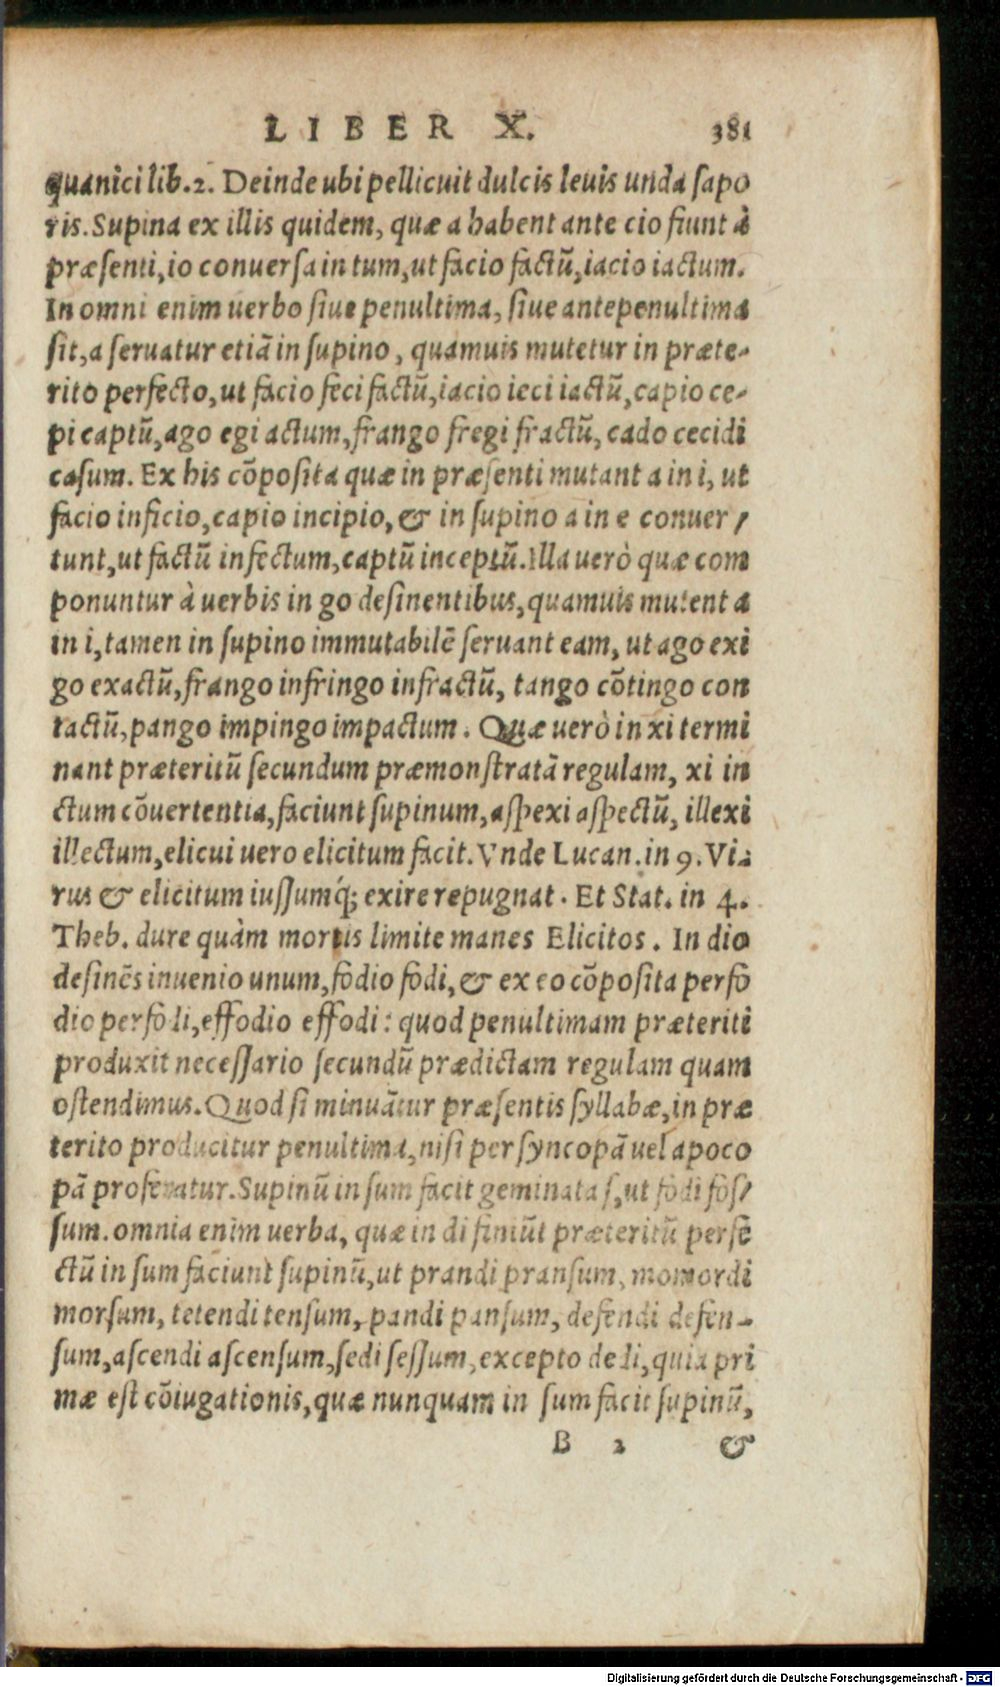 LIBER X. 381
quanici lib.2. Deinde ubi pellicuit dulcis leuis unda sapo
ris. Supina ex illis quidem, quæ a habent ante cio fiunt à
præsenti, io conuersa in tum, ut facio factū, iacio iactum.
In omni enim uerbo siue penultima, siue antepenultima
sit, a seruatur etiā in supino, quamuis mutetur in præte-
rito perfecto, ut facio feci factū, iacio ieci iactū, capio ce-
pi captū, ago egi actum, frango fregi fractū, cado cecidi
casum. Ex his cōposita quæ in præsenti mutant a in i, ut
facio inficio, capio incipio, & in supino a in e conuer-
tunt, ut factū infectum, captū inceptū. Illa uerò quæ com
ponuntur à uerbis in go desinentibus, quamuis mutent a
in i, tamen in supino immutabilē seruant eam, ut ago exi
go exactū, frango infringo infractū, tango cōtingo con
tactū, pango impingo impactum. Quæ uerò in xi termi
nant præteritū secundum præmonstratā regulam, xi in
ctum cōuertentia, faciunt supinum, aspexi aspectū, illexi
illectum, elicui uero elicitum facit. Vnde Lucan. in 9. Vi-
rus & elicitum iussumq́; exire repugnat. Et Stat. in 4.
Theb. dure quàm mortis limite manes Elicitos. In dio
desinēs inuenio unum, fodio fodi, & ex eo cōposita perfo
dio perfodi, effodio effodi: quod penultimam præteriti
produxit necessario secundū prædictam regulam quam
ostendimus. Quod si minuātur præsentis syllabæ, in præ
terito producitur penultima, nisi per syncopā uel apoco
pā proferatur. Supinū in sum facit geminata s, ut fodi fos-
sum. omnia enim uerba, quæ in di finiūt præteritū perfe
ctū in sum faciunt supinū, ut prandi pransum, momordi
morsum, tetendi tensum, pandi pansum, defendi defen-
sum, ascendi ascensum, sedi sessum, excepto dedi, quia pri
mæ est cōiugationis, quæ nunquam in sum facit supinū,
B 2 &
Digitalisierung gefördert durch die Deutsche Forschungsgemeinschaft - DFG